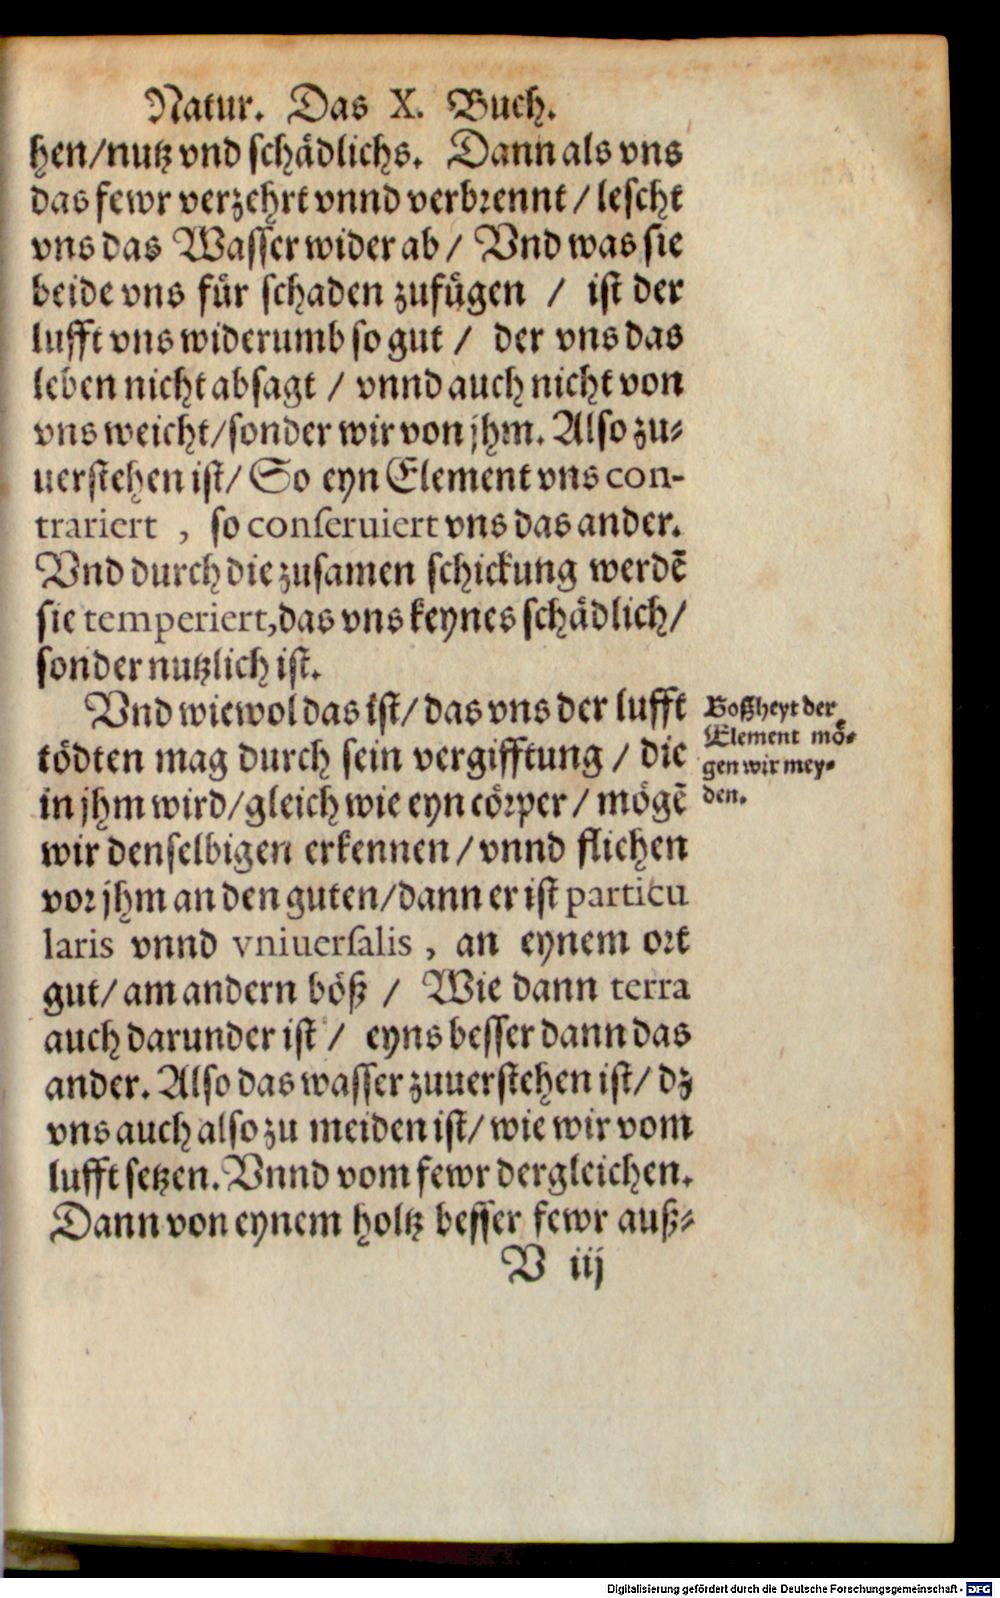 Natur. Das X. Buch.
hen/nutz vnd schådlichs. Dann als vns
das fewr verzehrt vnnd verbrennt / lescht
vns das Wasser wider ab / Vnd was sie
beide vns für schaden zufůgen / ist der
lufft vns widerumb so gut / der vns das
leben nicht absagt / vnnd auch nicht von
vns weicht/sonder wir von jhm. Also zu-
uerstehen ist/ So eyn Element vns con-
trariert , so conseruiert vns das ander.
Vnd durch die zusamen schickung werdẽ
sie temperiert,das vns keynes schådlich/
sonder nutzlich ist.
Vnd wiewol das ist/ das vns der lufft
tödten mag durch sein vergifftung / die
in jhm wird/gleich wie eyn cörper / mögẽ
wir denselbigen erkennen / vnnd fliehen
vor jhm an den guten/dann er ist particu
laris vnnd vniuersalis , an eynem ort
gut/ am andern böß / Wie dann terra
auch darunder ist / eyns besser dann das
ander. Also das wasser zuuerstehen ist/ dz
vns auch also zu meiden ist/ wie wir vom
lufft setzen. Vnnd vom fewr dergleichen.
Dann von eynem holtz besser fewr auß-
V iij
Boßheyt der
Element mö-
gen wir mey-
den.
Digitalisierung gefördert durch die Deutsche Forschungsgemeinschaft - DFG